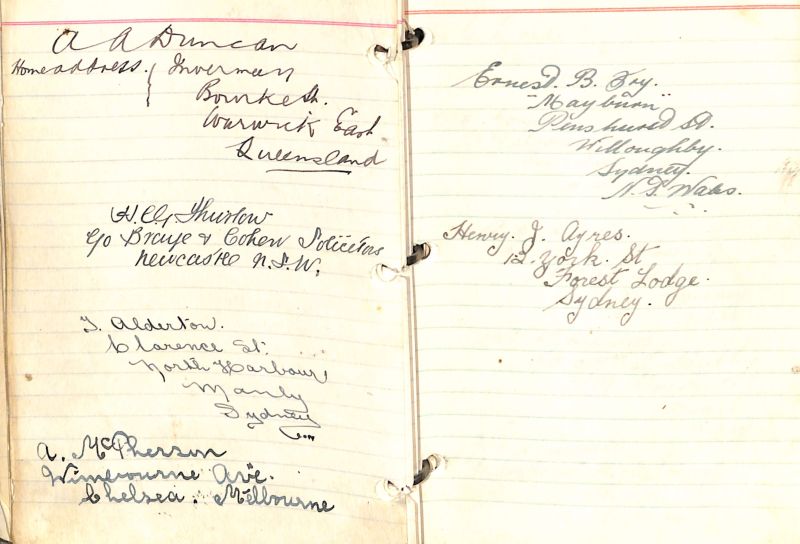 A A Duncan
Home address. Inverman
Bourke St.
Warwick East
Queensland
H. C. Thurlow
c/o Braye & Cohen Solicitors
Newcastle N.S.W.
T. Alderton.
Clarence St.
North Harbour
Manly
Sydney
A. McPherson
Wimbourne Ave.
Chelsea. Melbourne
Ernest. B. Fry.
"Mayburn"
Penshurst St.
Willoughby.
Sydney.
N.S. Wales.
Henry. J. Ayres.
12. York. St
Forest Lodge.
Sydney.